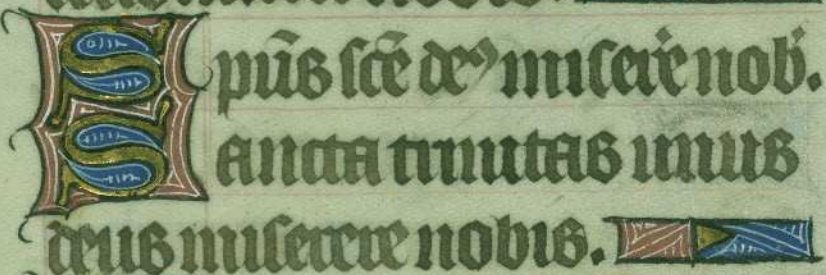 Spūs scē deꝰ miserē nob̄.
Sancta trinitas unus
deus miserere nobis.